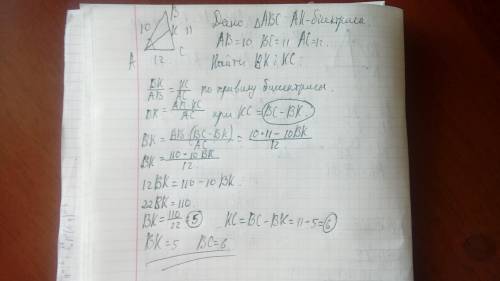 B
10 K 11
A 12 C
Дано: △ABC AK-бісектриса
AB=10 BC=11 AC=12.
Найти: BK і KC.
BK/AB = KC/AC по правилу бісектриси.
BK = AB·KC/AC при KC = BC-BK
BK = AB·(BC-BK)/AC = 10·11-10BK/12
BK = 110-10BK/12
12BK=110-10BK.
22BK=110.
BK=110/22=5 KC=BC-BK=11-5=6
BK=5 BC=6